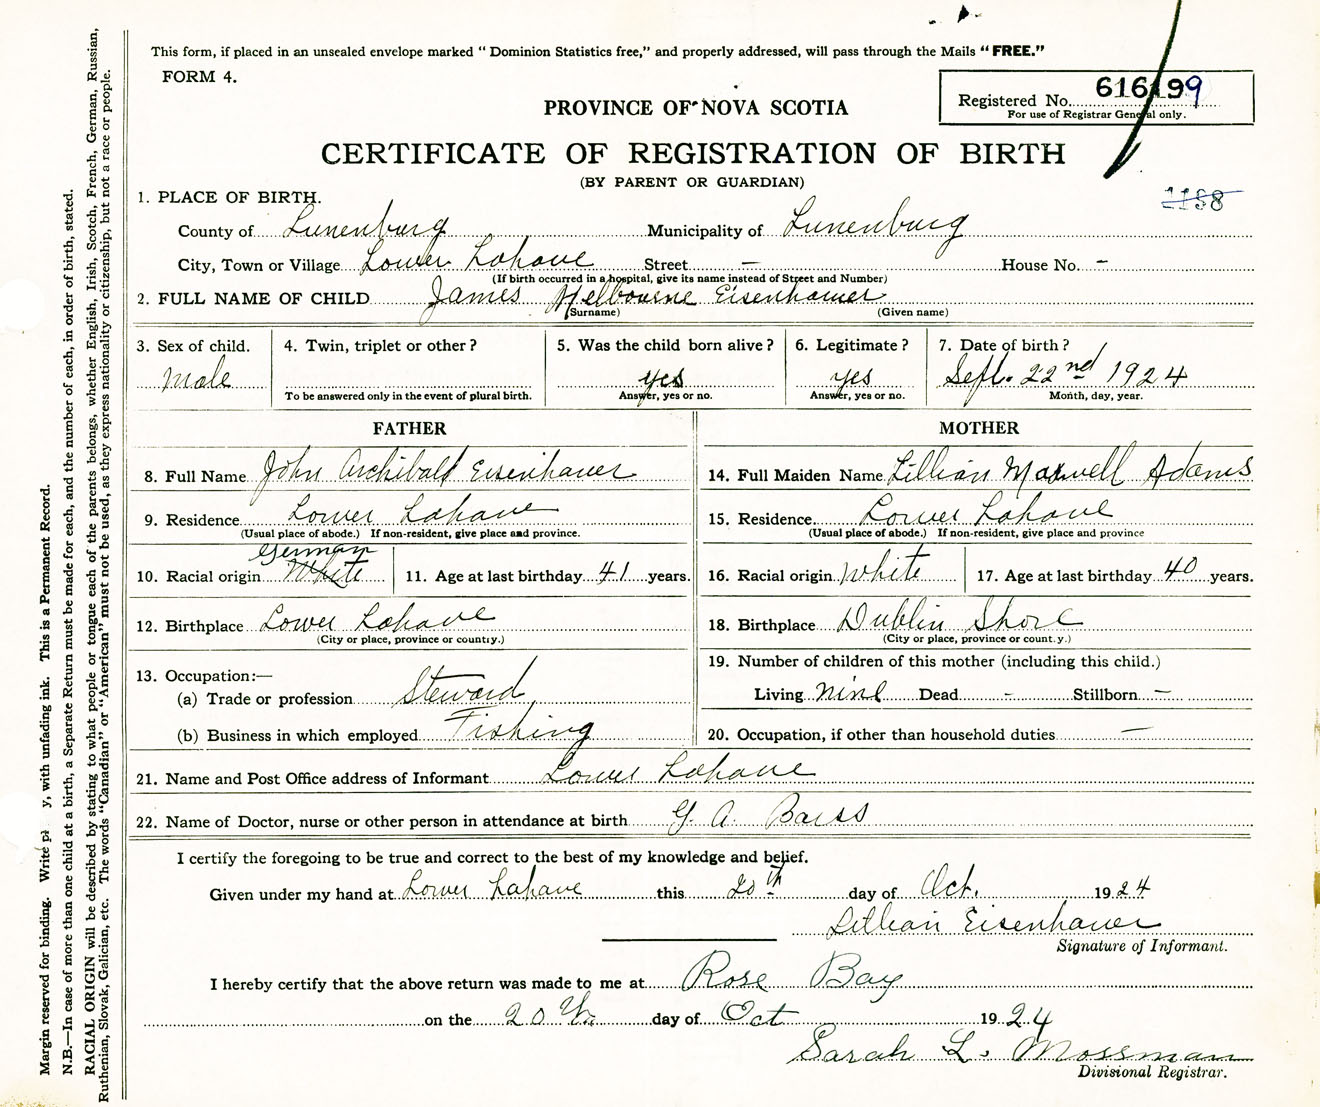 This form, if placed in an unsealed envelope marked "Dominion Statistics free," and properly addressed, will pass through the Mails "FREE."
FORM 4.
Registered No. 616199
For use of Registrar General only.
PROVINCE OF NOVA SCOTIA
CERTIFICATE OF REGISTRATION OF BIRTH
(BY PARENT OR GUARDIAN)
1188
1. PLACE OF BIRTH.
County of Lunenburg Municipality of Lunenburg
City, Town or Village Lower Lahave Street — House No. -
(If birth occurred in a hospital, give its name instead of Street and Number)
2. FULL NAME OF CHILD James Melbourne Eisenhauer
(Surname) (Given name)
3. Sex of child. 4. Twin, triplet or other? 5. Was the child born alive? 6. Legitimate? 7. Date of birth?
Male yes yes Sept. 22nd 1924
To be answered only in the event of plural birth. Answer, yes or no. Answer, yes or no. Month, day, year.
FATHER MOTHER
8. Full Name John Archibald Eisenhauer 14. Full Maiden Name Lillian Maxwell Adams
9. Residence Lower Lahave 15. Residence. Lower Lahave
(Usual place of abode.) If non-resident, give place and province. (Usual place of abode.) If non-resident, give place and province
German
10. Racial origin White 11. Age at last birthday 41 years. 16. Racial origin White 17. Age at last birthday 40 years.
12. Birthplace Lower Lahave 18. Birthplace Dublin Shore
(City or place, province or county.) (City or place, province or county.)
13. Occupation:— 19. Number of children of this mother (including this child.)
(a) Trade or profession Steward Living nine Dead - Stillborn —
(b) Business in which employed Fishing 20. Occupation, if other than household duties —
21. Name and Post Office address of Informant Lower Lahave
22. Name of Doctor, nurse or other person in attendance at birth G. A. Barss
I certify the foregoing to be true and correct to the best of my knowledge and belief.
Given under my hand at Lower Lahave this 20th day of Oct. 1924
Lillian Eisenhauer
Signature of Informant.
I hereby certify that the above return was made to me at Rose Bay
on the 20th day of Oct 1924
Sarah L. Mossman
Divisional Registrar.
Margin reserved for binding. Write y, with unfading ink. This is a Permanent Record.
N.B.—In case of more than one child at a birth, a Separate Return must be made for each, and the number of each, in order of birth, stated.
RACIAL ORIGIN will be described by stating to what people or tongue each of the parents belongs, whether English, Irish, Scotch, French, German, Russian,
Ruthenian, Slovak, Galician, etc. The words "Canadian" or "American" must not be used, as they express nationality or citizenship, but not a race or people.